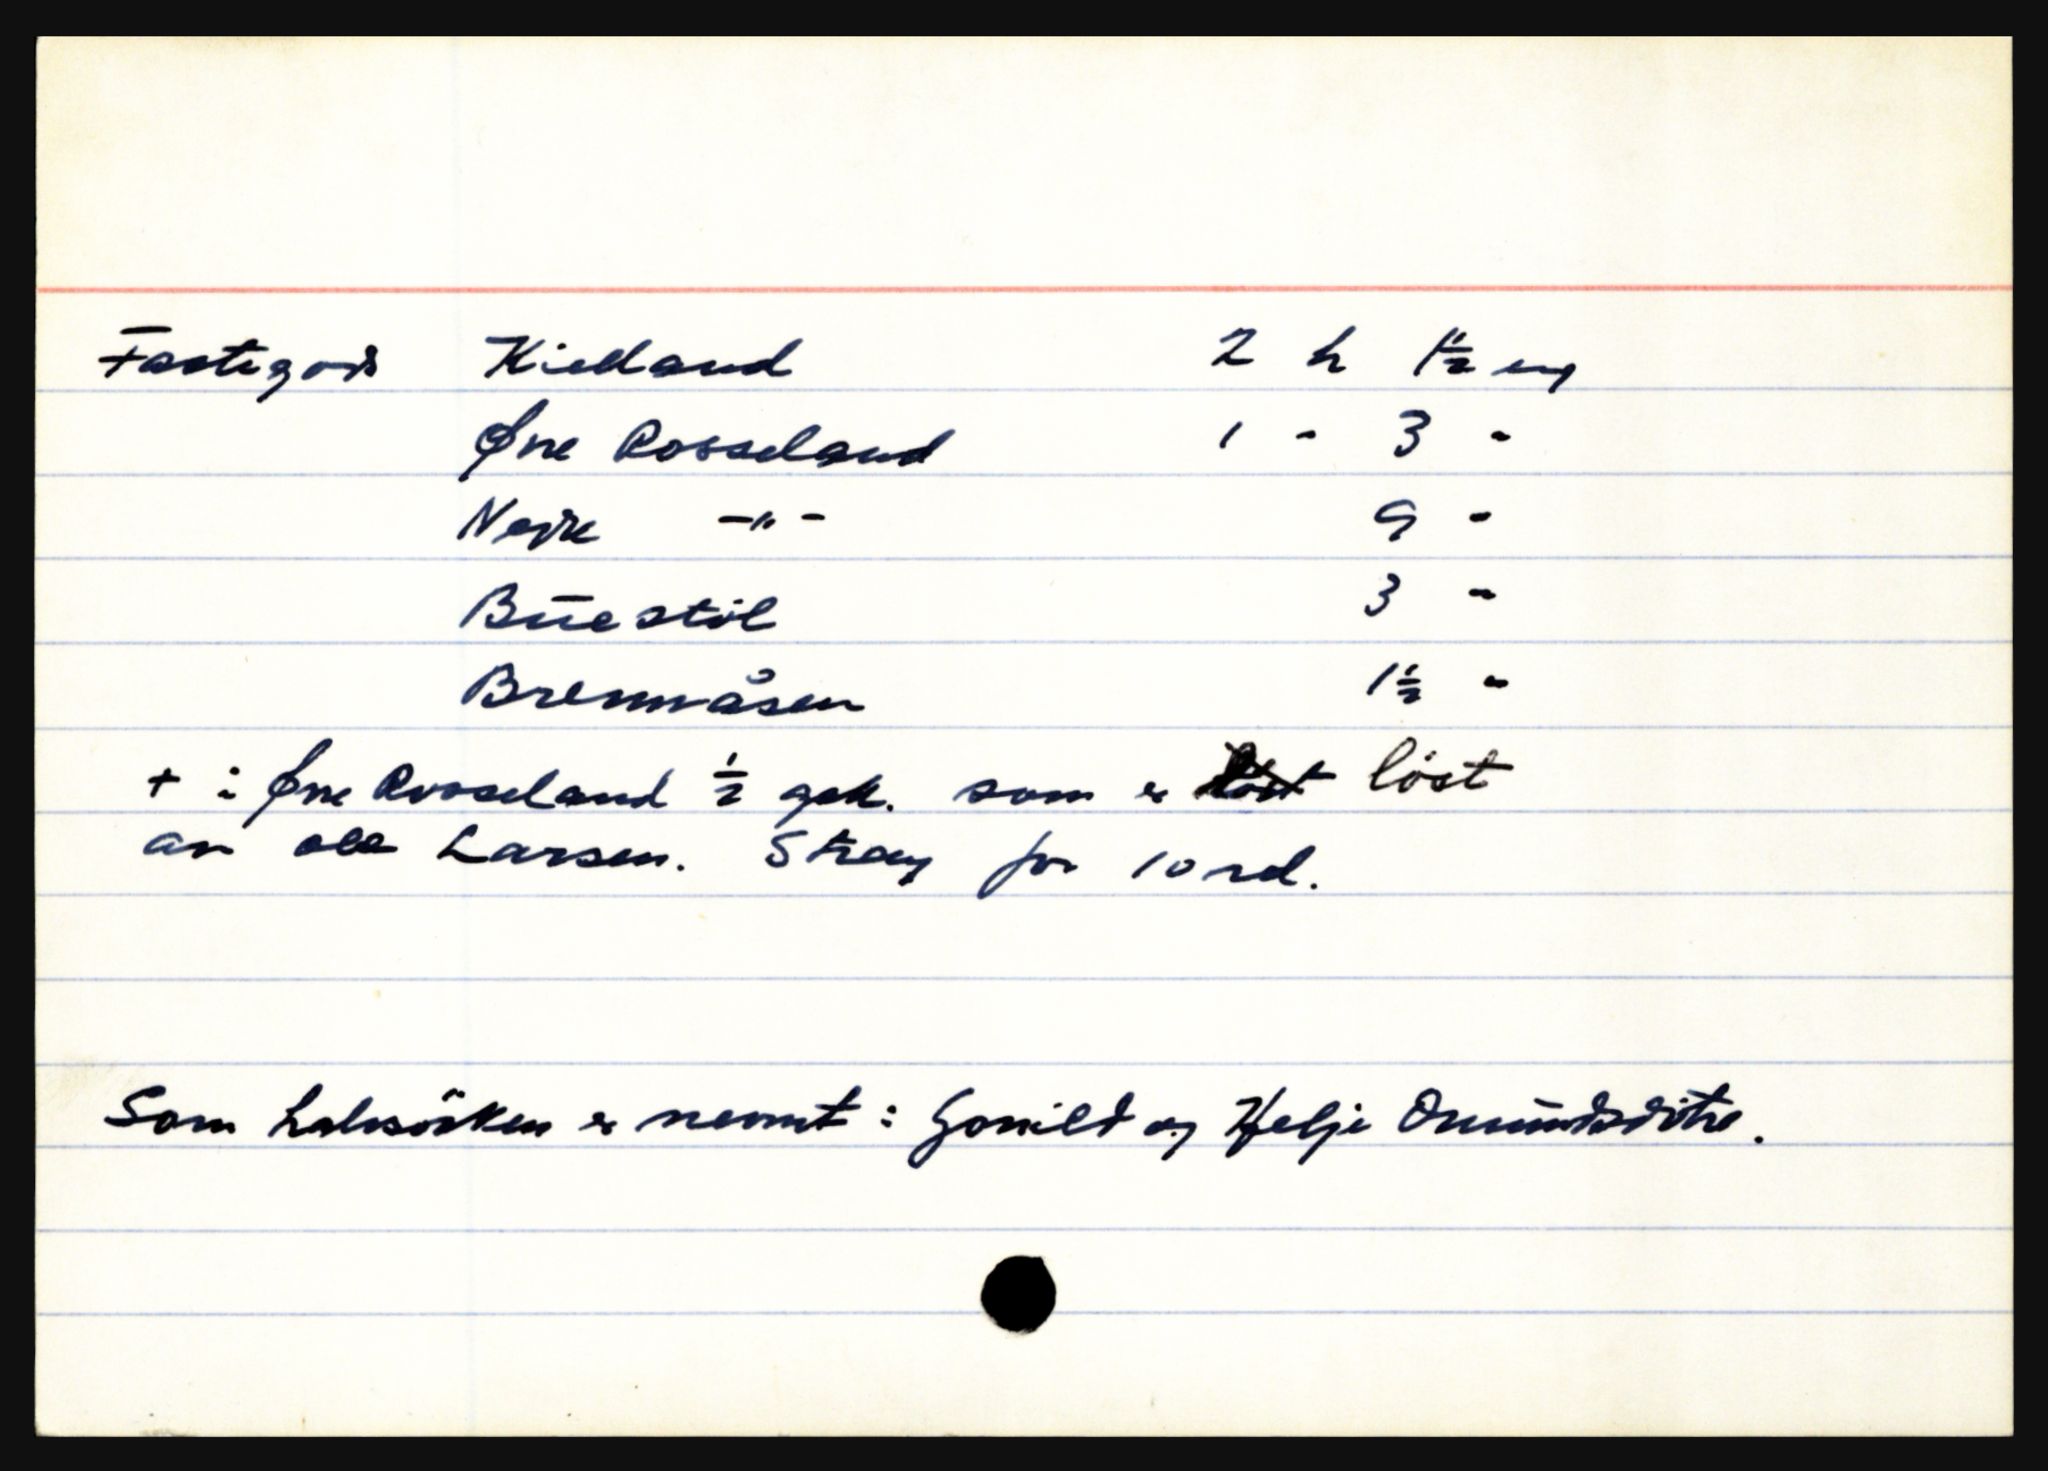 Fastegods Kielland 2 h 1½ eng
Øvre Rosseland 1 - 3 -
Nedre -"- 9 -
Büestöl 3 -
Brennåsen 1½ -
+ i Øvre Rosseland ½ gek. som er löst
av Ole Larsen. Stray for 10 rd.
Som halvsösken er nevnt: Gonild og Helje Onundsdötre.